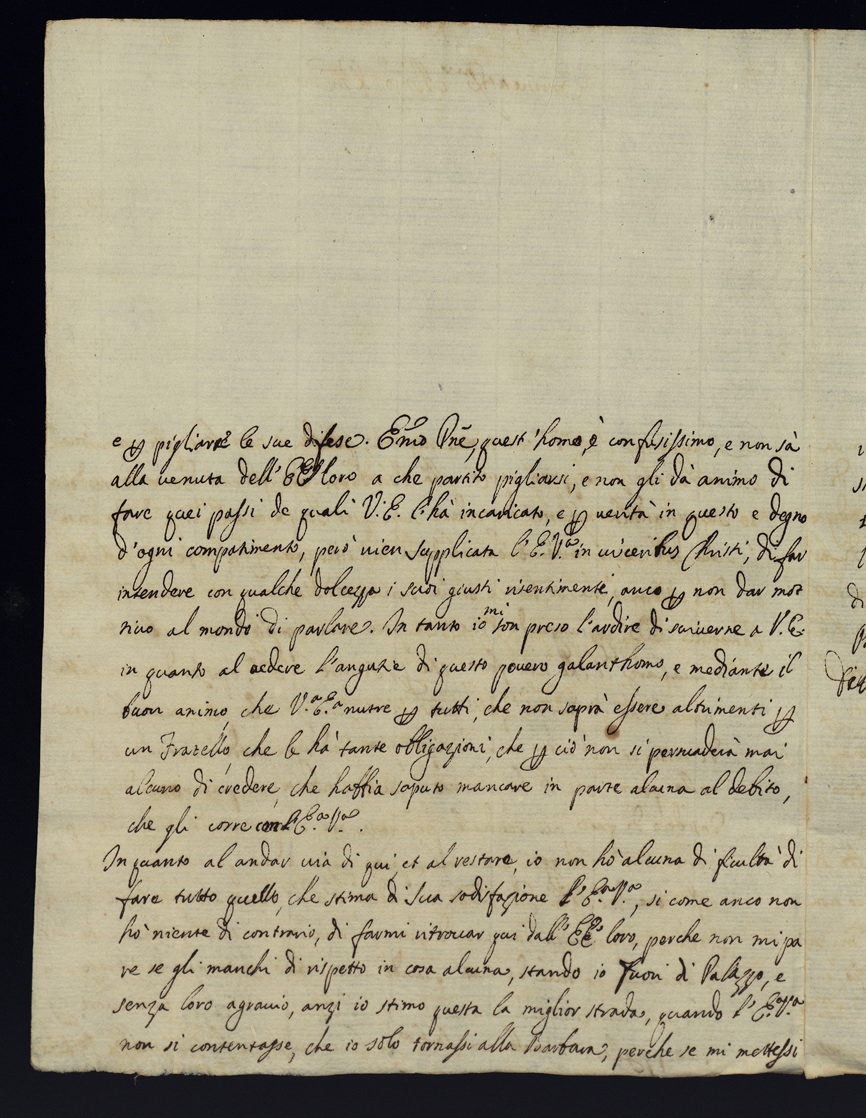 e p pigliare le sue difese. Emo Pne, quest'homo è confusissimo, e non sà
alla venuta dell'EE loro a che partito pigliarsi, e non gli dà animo di
fare quei passi de quali V.E. l'hà incaricato, e p verità in questo e degno
d'ogni compatimento, però vien supplicata l'E.V.a in visceribus Christi, di far
intendere con qualche dolcezza i suoi giusti risentimenti, anco p non dar mot
tivo al mondo di parlare. In tanto io mi son preso l'ardire di scriverne a V.E.
in quanto al vedere l'angustie di questo povero galanthomo, e mediante il
buon animo, che V.a E.a nutre p tutti, che non saprà essere altrimenti p
un Fratello, che le hà tante obligazioni, che p ciò non si persuaderà mai
alcuno di credere, che habbia saputo mancare in parte alcuna al debito,
che gli corre con l'E.a V.a.
In quanto al andar via di qui, et al restare, io non hò alcuna dificultà di
fare tutto quello, che stima di sua sodisfazione l'E.a V.a, si come anco non
hò niente di contrario, di farmi ritrovar qui dall'EE loro, perche non mi pa
re se gli manchi di rispetto in cosa alcuna, stando io fuori di Palazzo, e
senza loro agravio, anzi io stimo questa la miglior strada, quando l'E.a V.a
non si contentasse, che io solo tornassi alla Barbara, perche se mi mettessi